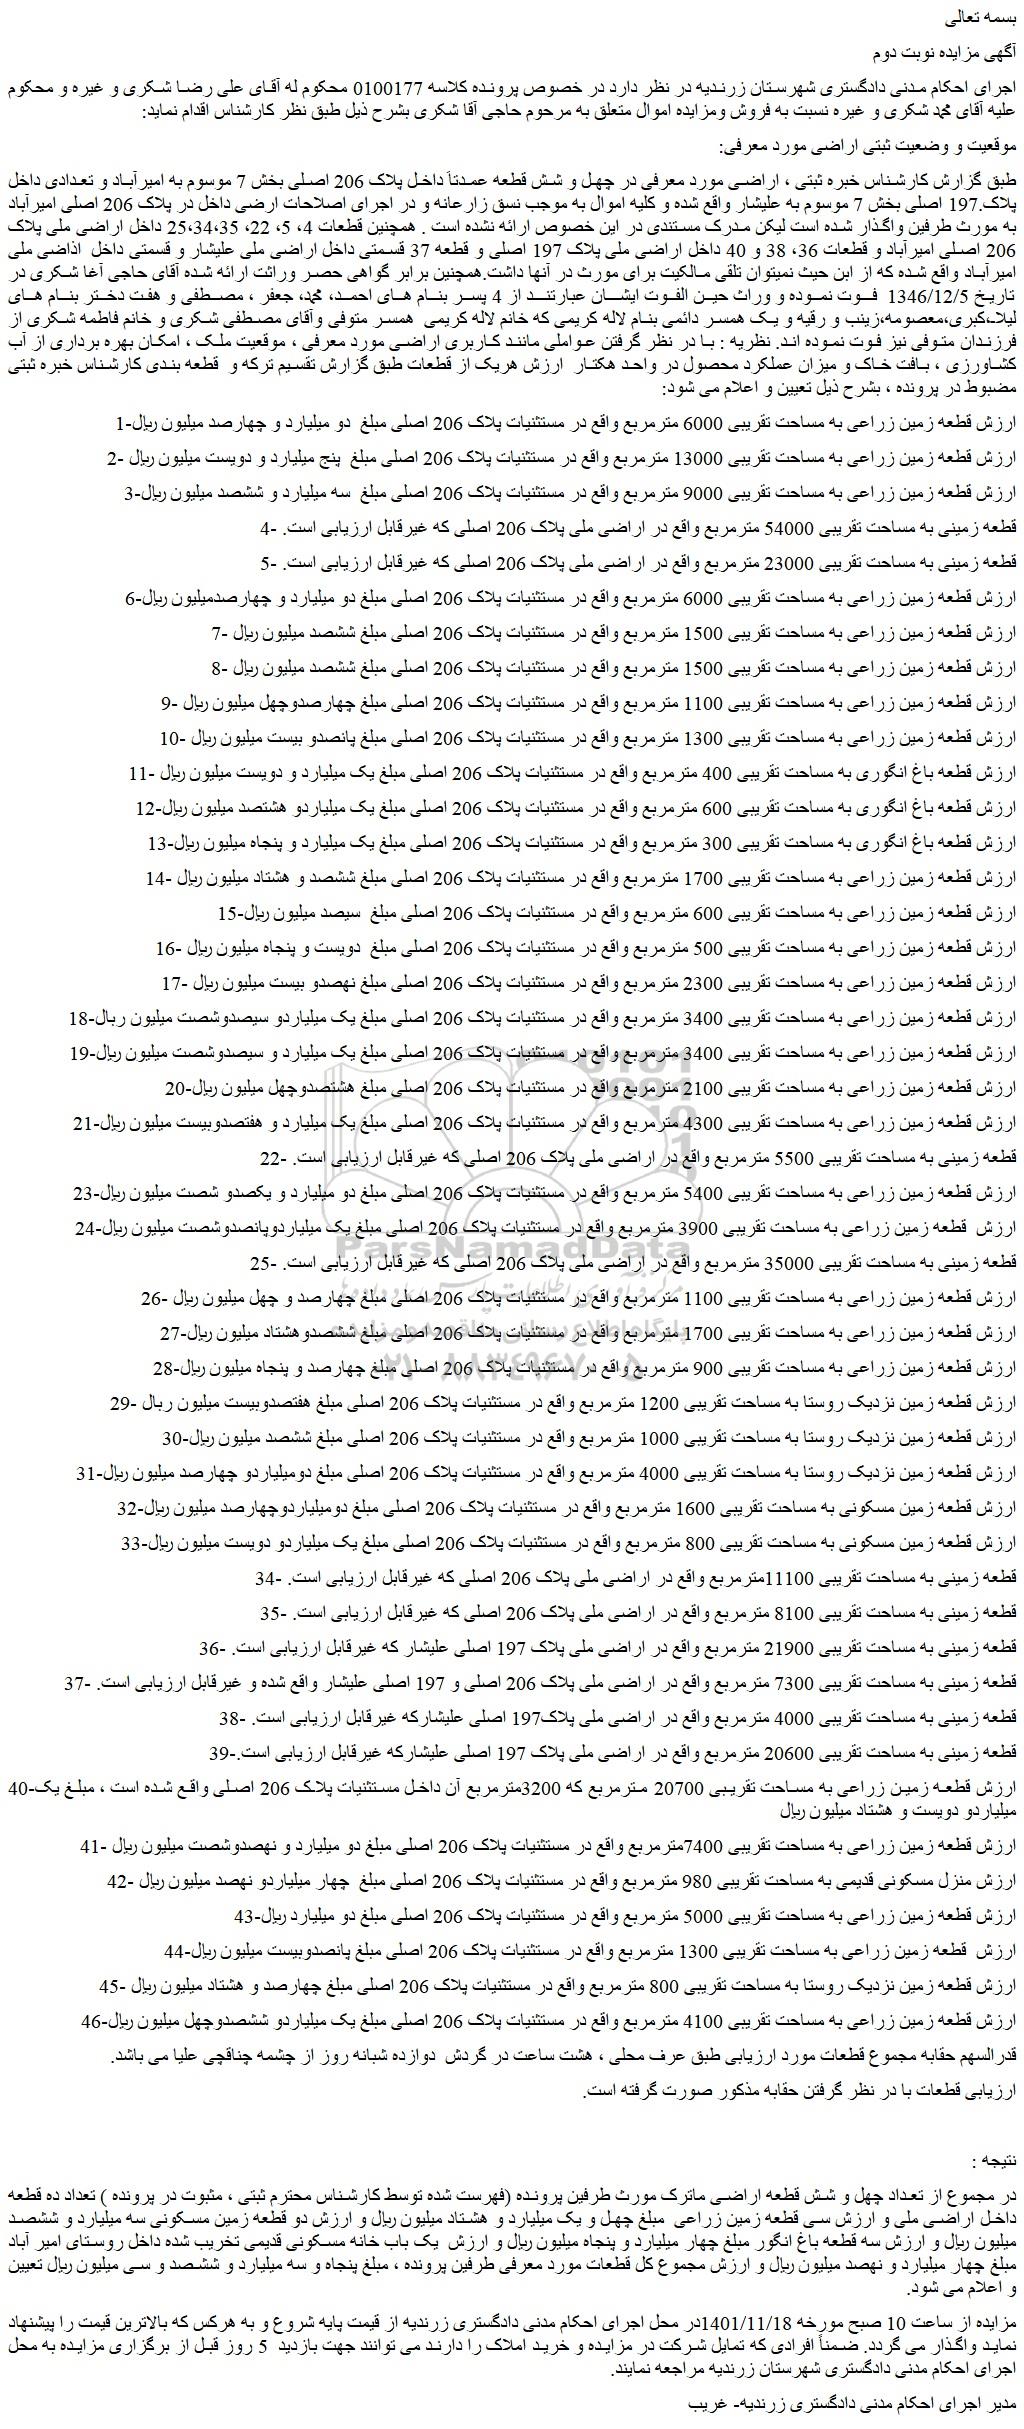 بسمه تعالی
آگهی مزایده نوبت دوم
اجرای احکام مدنی دادگستری شهرستان زرندیه در نظر دارد در خصوص پرونده کلاسه 0100177 محکوم له آقای علی رضا شکری و غیره و محکوم
علیه آقای محمد شکری و غیره نسبت به فروش ومزایده اموال متعلق به مرحوم حاجی آقا شکری بشرح ذیل طبق نظر کارشناس اقدام نماید:
موقعیت و وضعیت ثبتی اراضی مورد معرفی:
طبق گزارش کارشناس خبره ثبتی ، اراضی مورد معرفی در چهل و شش قطعه عمدتاً داخل پلاک 206 اصلی بخش 7 موسوم به امیرآباد و تعدادی داخل
پلاک.197 اصلی بخش 7 موسوم به علیشار واقع شده و کلیه اموال به موجب نسق زارعانه و در اجرای اصلاحات ارضی داخل در پلاک 206 اصلی امیرآباد
به مورث طرفین واگذار شده است لیکن مدرک مستندی در این خصوص ارائه نشده است . همچنین قطعات 4، 5، 22، 25،34،35 داخل اراضی ملی پلاک
206 اصلی امیرآباد و قطعات 36، 38 و 40 داخل اراضی ملی پلاک 197 اصلی و قطعه 37 قسمتی داخل اراضی ملی علیشار و قسمتی داخل اذاضی ملی
امیرآباد واقع شده که از ابن حیث نمیتوان تلقی مالکیت برای مورث در آنها داشت.همچنین برابر گواهی حصر وراثت ارائه شده آقای حاجی آغا شکری در
تاریخ 1346/12/5 فوت نموده و وراث حین الفوت ایشان عبارتند از 4 پسر بنام های احمد، محمد، جعفر ، مصطفی و هفت دختر بنام های
لیلا،کبری،معصومه،زینب و رقیه و یک همسر دائمی بنام لاله کریمی که خانم لاله کریمی همسر متوفی وآقای مصطفی شکری و خانم فاطمه شکری از
فرزندان متوفی نیز فوت نموده اند. نظریه : با در نظر گرفتن عواملی مانند کاربری اراضی مورد معرفی ، موقعیت ملک ، امکان بهره برداری از آب
کشاورزی ، بافت خاک و میزان عملکرد محصول در واحد هکتار ارزش هریک از قطعات طبق گزارش تقسیم ترکه و قطعه بندی کارشناس خبره ثبتی
مضبوط در پرونده ، بشرح ذیل تعیین و اعلام می شود:
ارزش قطعه زمین زراعی به مساحت تقریبی 6000 مترمربع واقع در مستثنیات پلاک 206 اصلی مبلغ دو میلیارد و چهارصد میلیون ریال-1
ارزش قطعه زمین زراعی به مساحت تقریبی 13000 مترمربع واقع در مستثنیات پلاک 206 اصلی مبلغ پنج میلیارد و دویست میلیون ریال -2
ارزش قطعه زمین زراعی به مساحت تقریبی 9000 مترمربع واقع در مستثنیات پلاک 206 اصلی مبلغ سه میلیارد و ششصد میلیون ریال-3
قطعه زمینی به مساحت تقریبی 54000 مترمربع واقع در اراضی ملی پلاک 206 اصلی که غیرقابل ارزیابی است. -4
قطعه زمینی به مساحت تقریبی 23000 مترمربع واقع در اراضی ملی پلاک 206 اصلی که غیرقابل ارزیابی است. -5
ارزش قطعه زمین زراعی به مساحت تقریبی 6000 مترمربع واقع در مستثنیات پلاک 206 اصلی مبلغ دو میلیارد و چهارصدمیلیون ریال-6
ارزش قطعه زمین زراعی به مساحت تقریبی 1500 مترمربع واقع در مستثنیات پلاک 206 اصلی مبلغ ششصد میلیون ریال -7
ارزش قطعه زمین زراعی به مساحت تقریبی 1500 مترمربع واقع در مستثنیات پلاک 206 اصلی مبلغ ششصد میلیون ریال -8
ارزش قطعه زمین زراعی به مساحت تقریبی 1100 مترمربع واقع در مستثنیات پلاک 206 اصلی مبلغ چهارصدوچهل میلیون ریال -9
ارزش قطعه زمین زراعی به مساحت تقریبی 1300 مترمربع واقع در مستثنیات پلاک 206 اصلی مبلغ پانصدو بیست میلیون ریال -10
ارزش قطعه باغ انگوری به مساحت تقریبی 400 مترمربع واقع در مستثنیات پلاک 206 اصلی مبلغ یک میلیارد و دویست میلیون ریال -11
ارزش قطعه باغ انگوری به مساحت تقریبی 600 مترمربع واقع در مستثنیات پلاک 206 اصلی مبلغ یک میلیاردو هشتصد میلیون ریال-12
ارزش قطعه باغ انگوری به مساحت تقریبی 300 مترمربع واقع در مستثنیات پلاک 206 اصلی مبلغ یک میلیارد و پنجاه میلیون ریال-13
ارزش قطعه زمین زراعی به مساحت تقریبی 1700 مترمربع واقع در مستثنیات پلاک 206 اصلی مبلغ ششصد و هشتاد میلیون ریال -14
ارزش قطعه زمین زراعی به مساحت تقریبی 600 مترمربع واقع در مستثنیات پلاک 206 اصلی مبلغ سیصد میلیون ریال-15
ارزش قطعه زمین زراعی به مساحت تقریبی 500 مترمربع واقع در مستثنیات پلاک 206 اصلی مبلغ دویست و پنجاه میلیون ریال -16
ارزش قطعه زمین زراعی به مساحت تقریبی 2300 مترمربع واقع در مستثنیات پلاک 206 اصلی مبلغ نهصدو بیست میلیون ریال -17
ارزش قطعه زمین زراعی به مساحت تقریبی 3400 مترمربع واقع در مستثنیات پلاک 206 اصلی مبلغ یک میلیاردو سیصدوشصت میلیون ربال-18
ارزش قطعه زمین زراعی به مساحت تقریبی 3400 مترمربع واقع در مستثنیات پلاک 206 اصلی مبلغ یک میلیارد و سیصدوشصت میلیون ریال-19
ارزش قطعه زمین زراعی به مساحت تقریبی 2100 مترمربع واقع در مستثنیات پلاک 206 اصلی مبلغ هشتصدوچهل میلیون ریال-20
ارزش قطعه زمین زراعی به مساحت تقریبی 4300 مترمربع واقع در مستثنیات پلاک 206 اصلی مبلغ یک میلیارد و هفتصدوبیست میلیون ریال-21
قطعه زمینی به مساحت تقریبی 5500 مترمربع واقع در اراضی ملی پلاک 206 اصلی که غیرقابل ارزیابی است. -22
ارزش قطعه زمین زراعی به مساحت تقریبی 5400 مترمربع واقع در مستثنیات پلاک 206 اصلی مبلغ دو میلیارد و یکصدو شصت میلیون ریال-23
ارزش قطعه زمین زراعی به مساحت تقریبی 3900 مترمربع واقع در مستثنیات پلاک 206 اصلی مبلغ یک میلیاردوپانصدوشصت میلیون ریال-24
ParsNamadData
قطعه زمینی به مساحت تقریبی 35000 مترمربع واقع در اراضی ملی پلاک 206 اصلی که غیرقابل ارزیابی است. -25
ارزش قطعه زمین زراعی به مساحت تقریبی 1100 مترمربع واقع در مستثنیات پلاک 206 اصلی مبلغ چهارصد و چهل میلیون ریال -26
ارزش قطعه زمین زراعی به مساحت تقریبی 1700 مترمربع واقع در مستثنیات پلاک 206 اصلی مبلغ ششصدوهشتاد میلیون ریال-27
ارزش قطعه زمین زراعی به مساحت تقریبی 900 مترمربع واقع در مستثنیات پلاک 206 اصلی مبلغ چهارصد و پنجاه میلیون ریال-28
ارزش قطعه زمین نزدیک روستا به مساحت تقریبی 1200 مترمربع واقع در مستثنیات پلاک 206 اصلی مبلغ هفتصدوبیست میلیون ربال -29
ارزش قطعه زمین نزدیک روستا به مساحت تقریبی 1000 مترمربع واقع در مستثنیات پلاک 206 اصلی مبلغ ششصد میلیون ریال-30
ارزش قطعه زمین نزدیک روستا به مساحت تقریبی 4000 مترمربع واقع در مستثنیات پلاک 206 اصلی مبلغ دومیلیاردو چهارصد میلیون ریال-31
ارزش قطعه زمین مسکونی به مساحت تقریبی 1600 مترمربع واقع در مستثنیات پلاک 206 اصلی مبلغ دومیلیاردوچهارصد میلیون ریال-32
ارزش قطعه زمین مسکونی به مساحت تقریبی 800 مترمربع واقع در مستثنیات پلاک 206 اصلی مبلغ یک میلیاردو دویست میلیون ریال-33
قطعه زمینی به مساحت تقریبی 11100مترمربع واقع در اراضی ملی پلاک 206 اصلی که غیرقابل ارزیابی است. -34
قطعه زمینی به مساحت تقریبی 8100 مترمربع واقع در اراضی ملی پلاک 206 اصلی که غیرقابل ارزیابی است. -35
قطعه زمینی به مساحت تقریبی 21900 مترمربع واقع در اراضی ملی پلاک 197 اصلی علیشار که غیرقابل ارزیابی است. -36
قطعه زمینی به مساحت تقریبی 7300 مترمربع واقع در اراضی ملی پلاک 206 اصلی و 197 اصلی علیشار واقع شده و غیرقابل ارزیابی است. -37
قطعه زمینی به مساحت تقریبی 4000 مترمربع واقع در اراضی ملی پلاک197 اصلی علیشارکه غیرقابل ارزیابی است. -38
قطعه زمینی به مساحت تقریبی 20600 مترمربع واقع در اراضی ملی پلاک 197 اصلی علیشارکه غیرقابل ارزیابی است.-39
ارزش قطعه زمین زراعی به مساحت تقریبی 20700 مترمربع که 3200مترمربع آن داخل مستثنیات پلاک 206 اصلی واقع شده است ، مبلغ یک-40
میلیاردو دویست و هشتاد میلیون ریال
ارزش قطعه زمین زراعی به مساحت تقریبی 7400مترمربع واقع در مستثنیات پلاک 206 اصلی مبلغ دو میلیارد و نهصدوشصت میلیون ریال -41
ارزش منزل مسکونی قدیمی به مساحت تقریبی 980 مترمربع واقع در مستثنیات پلاک 206 اصلی مبلغ چهار میلیاردو نهصد میلیون ریال -42
ارزش قطعه زمین زراعی به مساحت تقریبی 5000 مترمربع واقع در مستثنیات پلاک 206 اصلی مبلغ دو میلیارد ریال-43
ارزش قطعه زمین زراعی به مساحت تقریبی 1300 مترمربع واقع در مستثنیات پلاک 206 اصلی مبلغ پانصدوبیست میلیون ریال-44
ارزش قطعه زمین نزدیک روستا به مساحت تقریبی 800 مترمربع واقع در مستثنیات پلاک 206 اصلی مبلغ چهارصد و هشتاد میلیون ریال -45
ارزش قطعه زمین زراعی به مساحت تقریبی 4100 مترمربع واقع در مستثنیات پلاک 206 اصلی مبلغ یک میلیاردو ششصدوچهل میلیون ریال-46
قدرالسهم حقابه مجموع قطعات مورد ارزیابی طبق عرف محلی ، هشت ساعت در گردش دوازده شبانه روز از چشمه چناقچی علیا می باشد.
ارزیابی قطعات با در نظر گرفتن حقابه مذکور صورت گرفته است.
نتیجه :
در مجموع از تعداد چهل و شش قطعه اراضی ماترک مورث طرفین پرونده (فهرست شده توسط کارشناس محترم ثبتی ، مثبوت در پرونده ) تعداد ده قطعه
داخل اراضی ملی و ارزش سی قطعه زمین زراعی مبلغ چهل و یک میلیارد و هشتاد میلیون ریال و ارزش دو قطعه زمین مسکونی سه میلیارد و ششصد
میلیون ریال و ارزش سه قطعه باغ انگور مبلغ چهار میلیارد و پنجاه میلیون ریال و ارزش یک باب خانه مسکونی قدیمی تخریب شده داخل روستای امیر آباد
مبلغ چهار میلیارد و نهصد میلیون ریال و ارزش مجموع کل قطعات مورد معرفی طرفین پرونده ، مبلغ پنجاه و سه میلیارد و ششصد و سی میلیون ریال تعیین
و اعلام می شود.
مزایده از ساعت 10 صبح مورخه 1401/11/18در محل اجرای احکام مدنی دادگستری زرندیه از قیمت پایه شروع و به هرکس که بالاترین قیمت را پیشنهاد
نماید واگذار می گردد. ضمناً افرادی که تمایل شرکت در مزایده و خرید املاک را دارند می توانند جهت بازدید 5 روز قبل از برگزاری مزایده به محل
اجرای احکام مدنی دادگستری شهرستان زرندیه مراجعه نمایند.
مدیر اجرای احکام مدنی دادگستری زرندیه- غریب